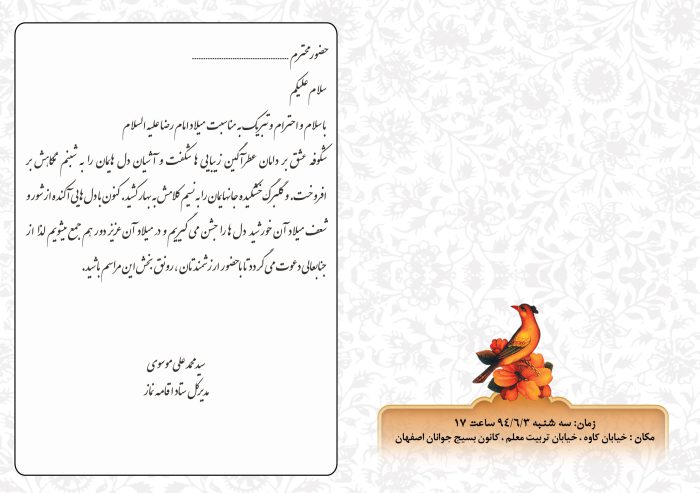 حضور محترم ........................................
سلام علیکم
با سلام و احترام و تبریک به مناسبت میلاد امام رضا علیه السلام
شکوفه عشق بر دامان عطرآگین زیبایی ها شگفت و آشیان دل هایمان را به شبنم نگاهش بر
افروخت. و گلبرگ خشکیده جانهایمان را به نسیم کلامش به بهار کشید. کنون با دل هایی آکنده از شور و
شعف میلاد آن خورشید دل ها را جشن می گیریم و در میلاد آن عزیز دور هم جمع میشویم لذا از
جنابعالی دعوت می گردد تا با حضور ارزشمندتان ، رونق بخش این مراسم باشید.
سید محمد علی موسوی
مدیرکل ستاد اقامه نماز
زمان: سه شنبه ۹٤/٦/۳ ساعت ۱۷
مکان : خیابان کاوه ، خیابان تربیت معلم ، کانون بسیج جوانان اصفهان